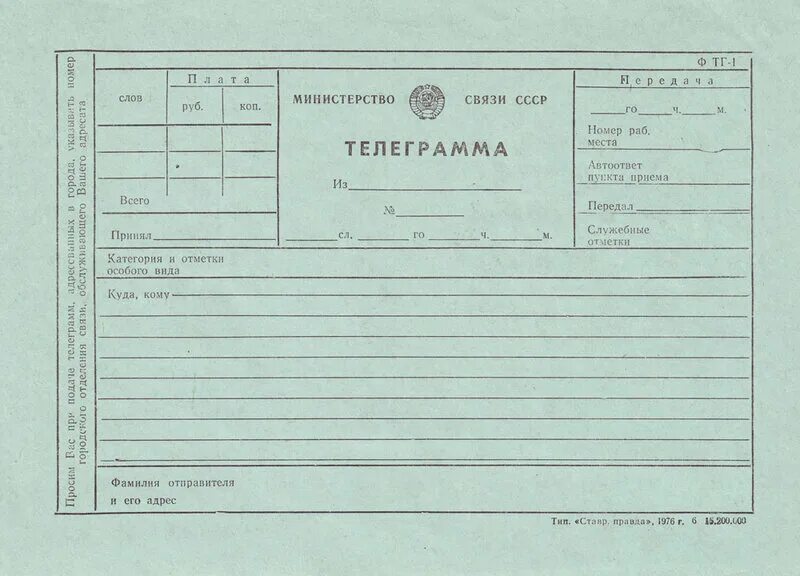 Ф ТГ-1
Плата
слов
руб.
коп.
Всего
Принял
МИНИСТЕРСТВО СВЯЗИ СССР
ТЕЛЕГРАММА
Из
№
сл. го ч. м.
Передача
го ч. м.
Номер раб.
места
Автоответ
пункта приема
Передал
Служебные
отметки
Категория и отметки
особого вида
Куда, кому
Фамилия отправителя
и его адрес
Просим Вас при подаче телеграмм, адресованных в города, указывать номер
городского отделения связи, обслуживающего Вашего адресата
Тип. «Ставр. правда», 1976 г. б 15.200.000